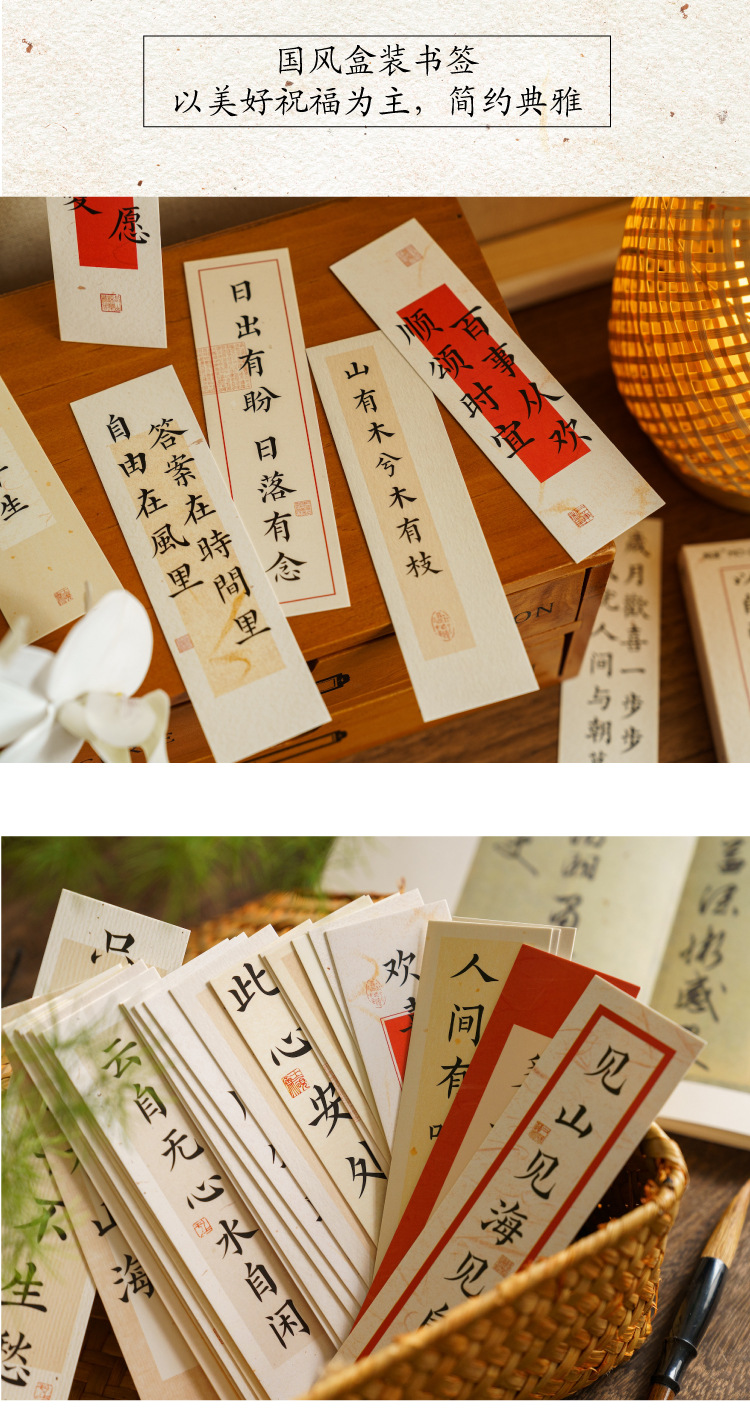 国风盒装书签
以美好祝福为主，简约典雅
愿
日出有盼 日落有念
百事从欢
顺颂时宜
山有木兮木有枝
答案在時間里
自由在風里
生
歲月歡喜一步步
人间与朝
ON
云自无心水自闲
此心安处
欢
人间有
见山见海见
山海
生愁